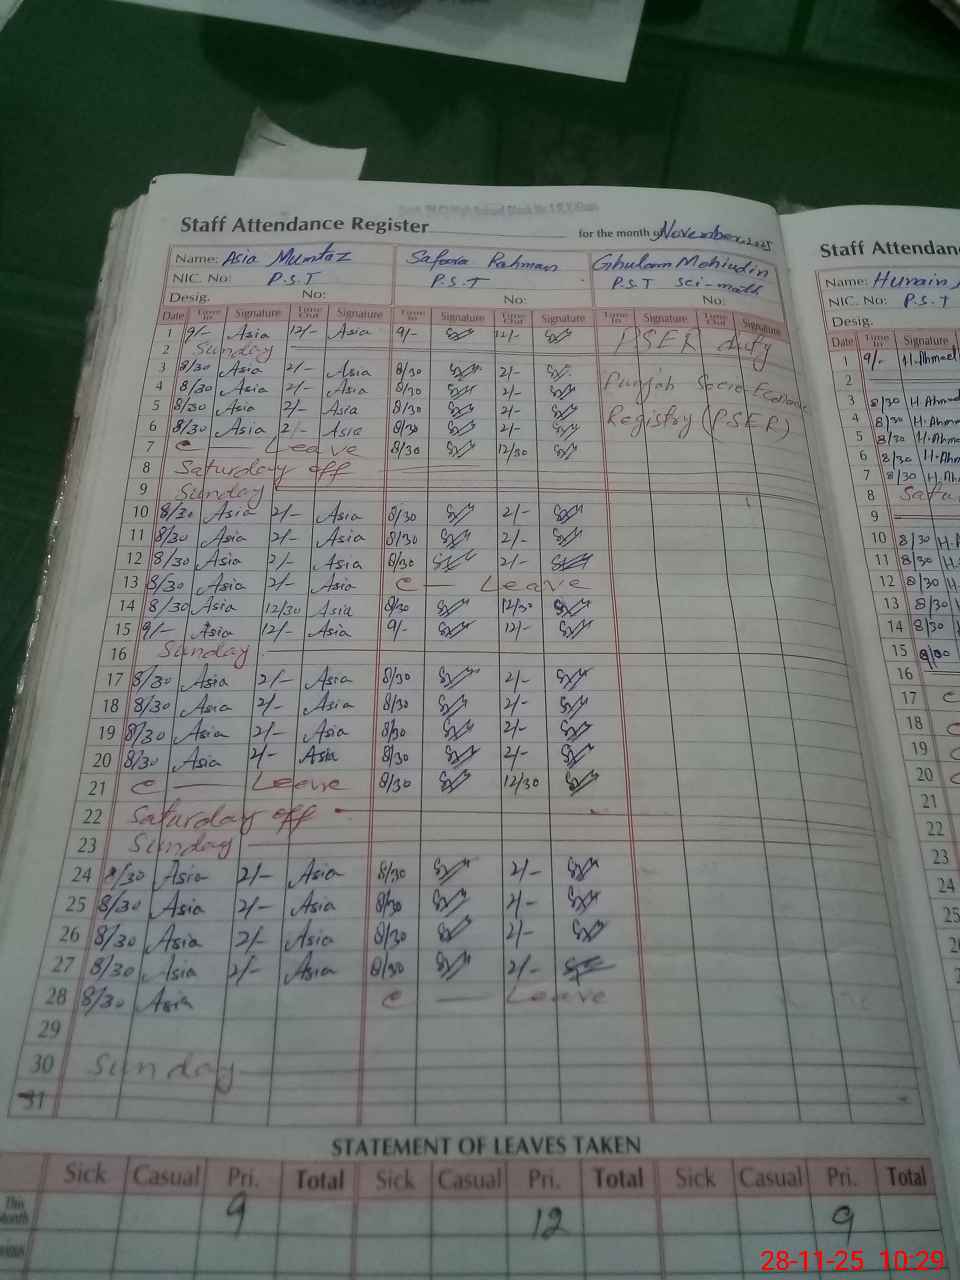 Staff Attendance Register for the month of November, 2025
Name: Asia Mumtaz Safoora Rahman Ghulam Mohiudin
NIC. No: P.S.T P.S.T P.S.T Sci-math
Desig. No: No: No:
Date Time In Signature Time Out Signature Time In Signature Time Out Signature Time In Signature Time Out Signature
1 9/- Asia 12/- Asia 9/- 12/- PSER duty
2 Sunday
3 8/30 Asia 2/- Asia 8/30 2/-
4 8/30 Asia 2/- Asia 8/30 2/- Punjab Socio-Economic
5 8/30 Asia 2/- Asia 8/30 2/-
6 8/30 Asia 2/- Asia 8/30 2/- Registry (PSER)
7 C Leave 8/30 12/30
8 Saturday off
9 Sunday
10 8/30 Asia 2/- Asia 8/30 2/-
11 8/30 Asia 2/- Asia 8/30 2/-
12 8/30 Asia 2/- Asia 8/30 2/-
13 8/30 Asia 2/- Asia C — Leave
14 8/30 Asia 12/30 Asia 8/30 12/30
15 9/- Asia 12/- Asia 9/- 12/-
16 Sunday
17 8/30 Asia 2/- Asia 8/30 2/-
18 8/30 Asia 2/- Asia 8/30 2/-
19 8/30 Asia 2/- Asia 8/30 2/-
20 8/30 Asia 2/- Asia 8/30 2/-
21 C — Leave 8/30 12/30
22 Saturday off
23 Sunday
24 8/30 Asia 2/- Asia 8/30 2/-
25 8/30 Asia 2/- Asia 8/30 2/-
26 8/30 Asia 2/- Asia 8/30 2/-
27 8/30 Asia 2/- Asia 8/30 2/-
28 8/30 Asia C — Leave
29
30 Sunday
31
STATEMENT OF LEAVES TAKEN
Sick Casual Pri. Total Sick Casual Pri. Total Sick Casual Pri. Total
This Month 9 12 9
Staff Attendan
Name: Hurain
NIC. No: P.S.T
Desig.
Date Time In Signature
1 9/- H.Ahmed
2
3 8/30 H.Ahma
4 8/30 H.Ahm
5 8/30 H.Ahm
6 8/30 H.Ahm
7 8/30 H.Ah
8 Satu
9
10 8/30 H
11 8/30 H
12 8/30 H
13 8/30
14 8/30
15 8/30
16
17 C
18 C
19 C
20 C
21
22
23
24
25
28-11-25 10:29